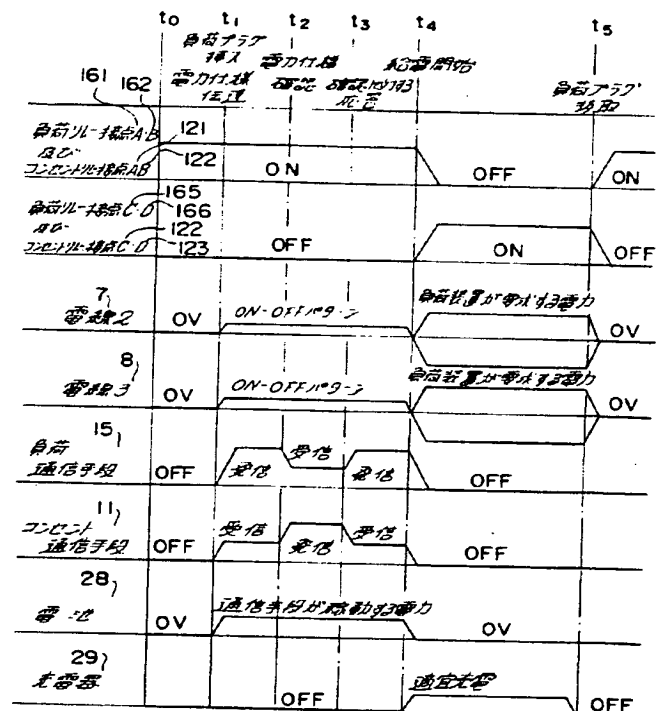 t0 t1 t2 t3 t4 t5
負荷プラグ
挿入
電力仕様
伝達
電力仕様
確認
確認に対する
応答
給電開始
負荷プラグ
抜取
161
162
負荷リレー接点A・B
121
及び
122
コンセントリレー接点A・B
ON
OFF
ON
負荷リレー接点C・D
165
166
及び
122
コンセントリレー接点C・D
123
OFF
ON
OFF
7
電線2
OV
ON-OFFパターン
負荷装置が要求する電力
OV
8
電線3
OV
ON-OFFパターン
負荷装置が要求する電力
OV
15
負荷
通信手段
OFF
発信
受信
発信
OFF
11
コンセント
通信手段
OFF
受信
発信
受信
OFF
28
電池
OV
通信手段が稼動する電力
OV
29
充電器
OFF
適宜充電
OFF